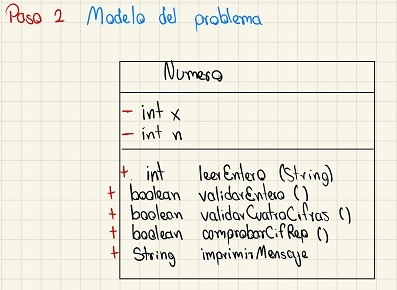 Paso 2 Modelo del problema
Numero
- int x
- int n
+ int leerEntero (String)
+ boolean validarEntero ()
+ boolean validarCuatroCifras ()
+ boolean comprobarCifRep ()
+ String imprimirMensaje